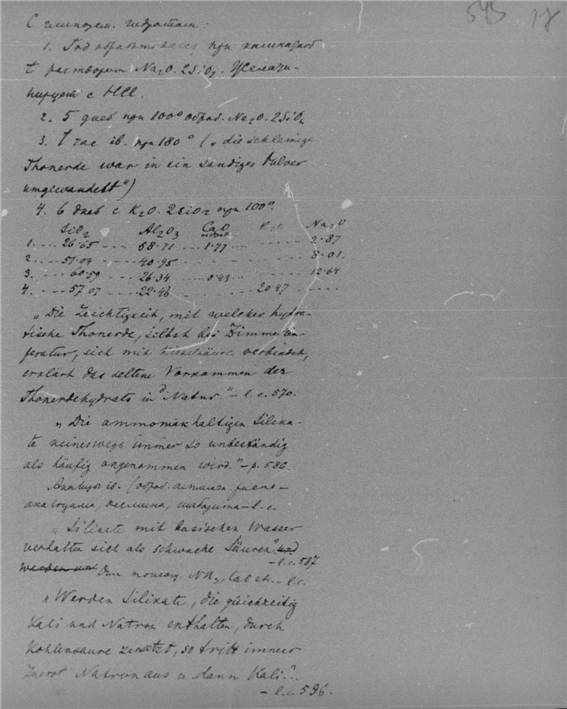 545 17
С глинозем. гидратом:
1. Год обработывали при комнатной
t раствором Na2O.2SiO2. Желати-
нирует с HCl.
2. 5 дней при 100° образ. Na2O.2SiO2
3. 1 час ib. при 180° („die schleimige
Thonerde war in ein sandiges Pulver
umgewandelt")
4. 6 дней с K2O.2SiO2 при 100°.
SiO2 Al2O3 CaO K2O Na2O
1.... 26.65 ... 68.71 .. 1.77 ...... 2.87
2.... 51.04 ... 40.95 ...... 8.01.
3. ... 60.59 ... 26.34 .... 0.43 ..... 12.64
4. ... 57.07 ... 22.46 ...... 20.47 .....
„Die Leichtigkeit, mit welcher hydra-
tische Thonerde, selbst bei Zimmertem-
peratur, sich mit Kieselsäure verbindet,
erklärt das seltene Vorkommen der
Thonerdehydrats in d. Natur." – l.c. 570.
„Die ammoniakhaltigen Silika-
te keineswegs immer so unbeständig
als häufig angenommen wird." – p. 580.
Анализы ib. (образ.
– l.c.
„Silicate mit basischem Wasser
verhalten sich als schwache Säuren" und
– l.c. 587
werden NH3, CaO etc. – l.c.
„Werden Silikate, die gleichzeitig
Kali und Natron enthalten, durch
Kohlensäure zersetzt, so tritt immer
zuerst Natron aus u. dann Kali".
– l.c. 596.